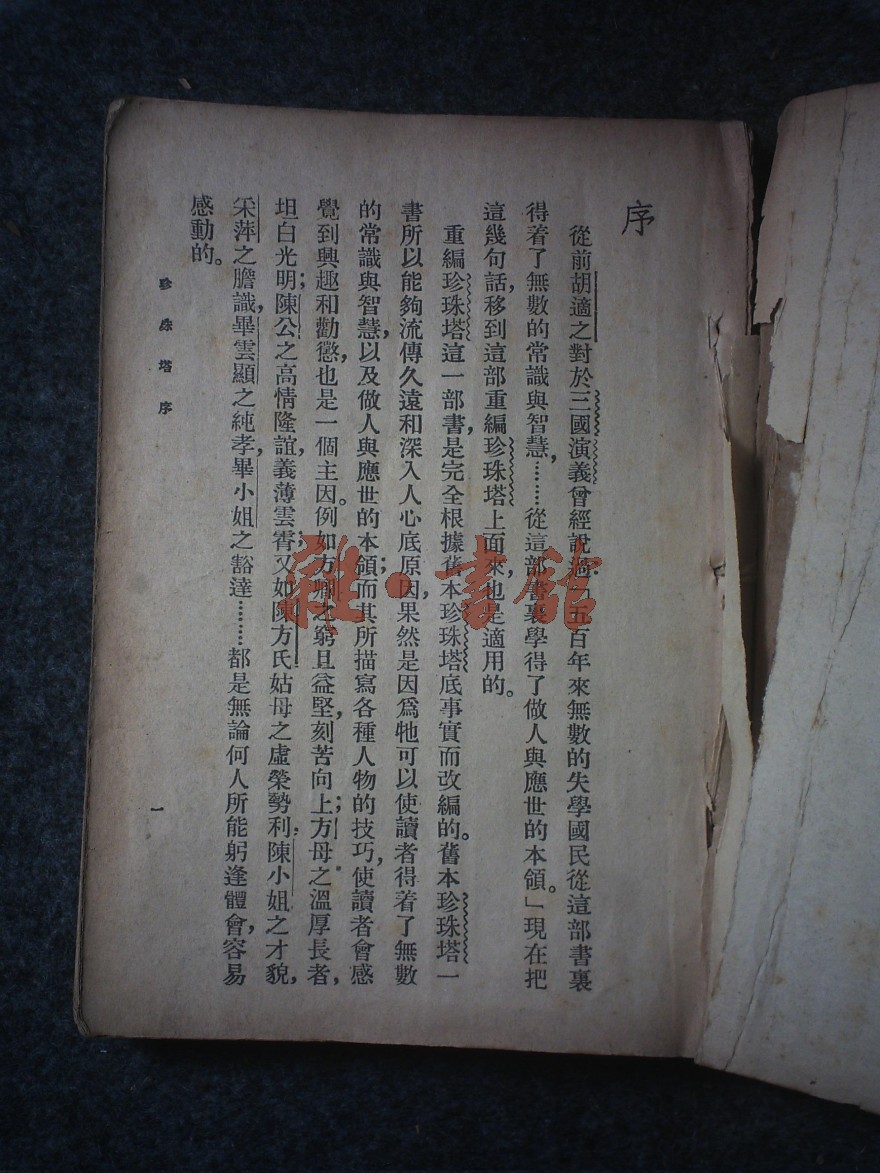 序
從前胡適之對於三國演義曾經說過：「五百年來無數的失學國民從這部書裏
得着了無數的常識與智慧，……從這部書裏學得了做人與應世的本領。」現在把
這幾句話，移到這部重編珍珠塔上面來，也是適用的。
重編珍珠塔這一部書，是完全根據舊本珍珠塔底事實而改編的。舊本珍珠塔一
書所以能夠流傳久遠和深入人心底原因，果然是因爲牠可以使讀者得着了無數
的常識與智慧，以及做人與應世的本領；而其所描寫各種人物的技巧，使讀者會感
覺到興趣和勸懲，也是一個主因。例如方卿之窮且益堅，刻苦向上；方母之溫厚長者，
坦白光明；陳公之高情隆誼，義薄雲霄；又如陳方氏姑母之虛榮勢利，陳小姐之才貌，
采萍之膽識，畢雲顯之純孝，畢小姐之豁達……都是無論何人所能躬逢體會，容易
感動的。
珍珠塔序
一
雜·書館